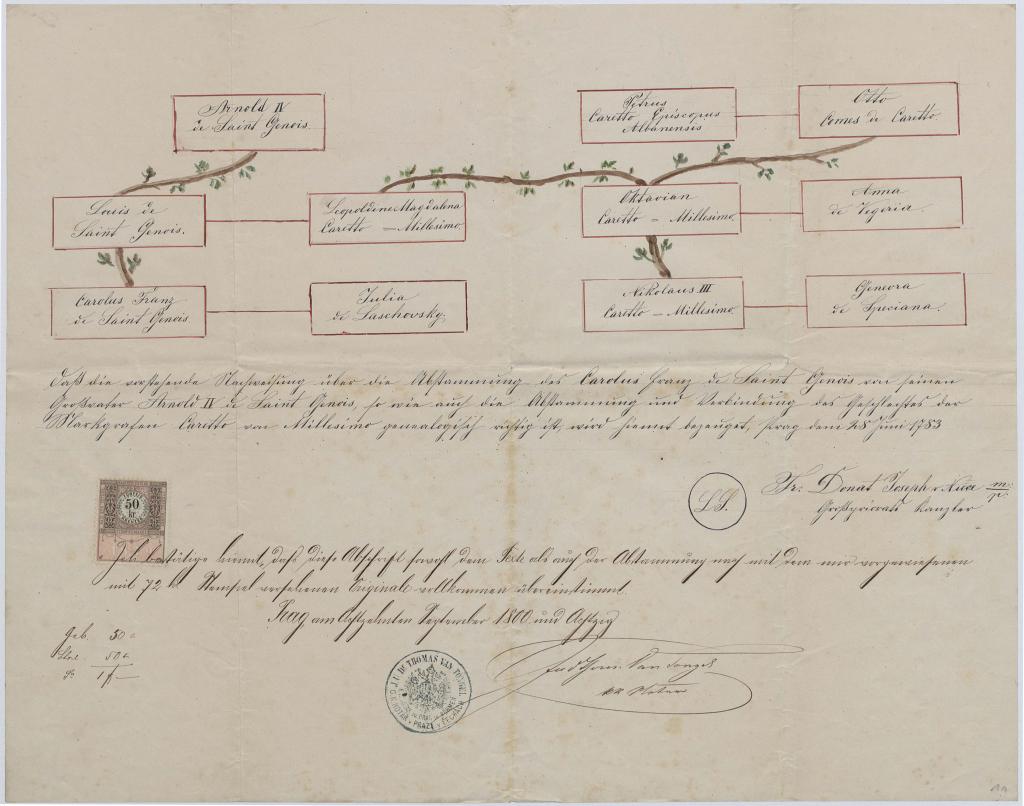 Arnold IV
de Saint Genois.
Petrus
Caretto Episcopus
Albanensis
Otto
Comes de Caretto.
Louis de
Saint Genois.
Leopoldene Magdalena
Caretto – Millesimo.
Oktavian
Caretto – Millesimo.
Anna
de Vegeria.
Carolus Franz
de Saint Genois
Julia
de Laschovsky.
Nikolaus III
Caretto – Millesimo.
Genevra
de Speciana.
Daß die vorstehende Nachweisung über die Abstammung des Carolus Franz de Saint Genois von seinen
Großvater Arnold IV de Saint Genois, so wie auch die Abstammung und Verbindung des Geschlechtes der
Markgrafen Caretto von Millesimo genealogisch richtig ist, wird hiemit bezeuget, Prag dem 28 Juni 1783
L.S.
Fr. Donat Joseph m/p.
Großpriorats Kanzler
50
kr.
Ich bestätige hiemit, daß diese Abschrift sowohl dem Texte als auch der Abstammung nach mit dem mir vorgewiesenen
mit 72 kr Stempel versehenen Originale vollkommen übereinstimmt.
Prag am Achtzehnten September 1800 und Achtzig
Geb. 50
50
1 f
J.U.DR THOMAS VAN TONGEL
PRAZE
JudThom. Van Tongel
kk Notar